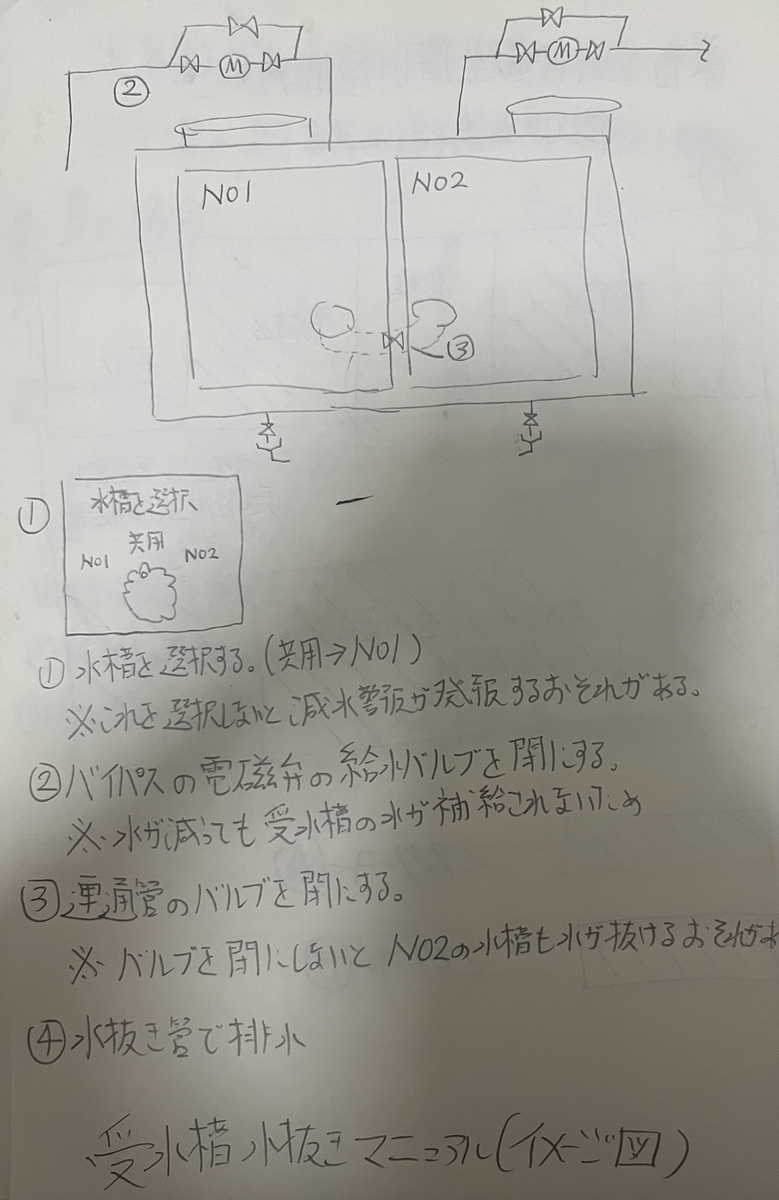 M
M
②
NO1
NO2
③
①
水槽を選択
共用
NO1
NO2
① 水槽を選択する。(共用→NO1)
※これを選択しないと減水警報が発報するおそれがある。
②バイパスの電磁弁の給水バルブを閉にする。
※水が減っても受水槽の水が補給されないため
③連通管のバルブを閉にする。
※バルブを閉にしないとNO2の水槽も水が抜けるおそれがあ
④水抜き管で排水
受水槽水抜きマニュアル(イメージ図)